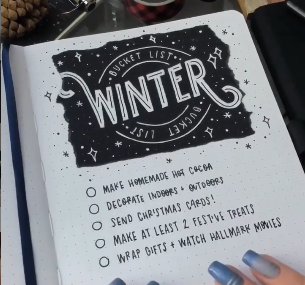 BUCKET LIST
WINTER
BUCKET LIST
MAKE HOMEMADE HOT COCOA
DECORATE INDOORS + OUTDOORS
SEND CHRISTMAS CARDS!
MAKE AT LEAST 2 FESTIVE TREATS
WRAP GIFTS + WATCH HALLMARK MOVIES